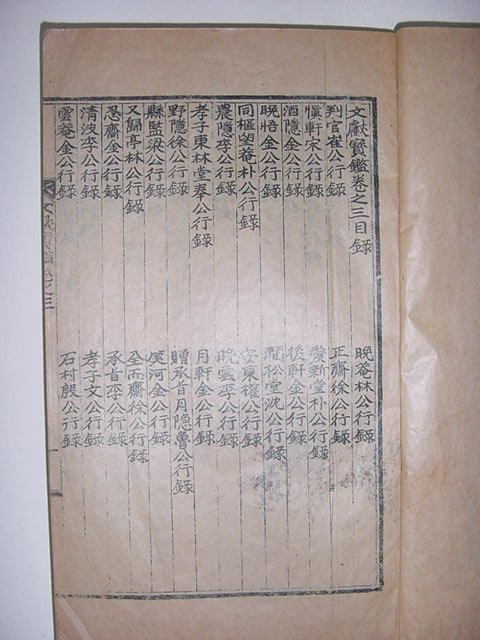 文獻寶鑑卷之三目錄
晚菴林公行錄
判官崔公行錄
正齋徐公行錄
愼軒宋公行錄
愛新堂朴公行錄
酒隱金公行錄
後軒金公行錄
晚悟金公行錄
澗松堂沈公行錄
同樞望菴朴公行錄
安東權公行錄
農隱李公行錄
晚雲李公行錄
孝子東林堂奉公行錄
月軒金公行錄
野隱徐公行錄
贈承旨月隐魯公行錄
縣監梁公行錄
金公行錄
又歸亭林公行錄
全而齋徐公行錄
忍齋金公行錄
承旨李公行錄
清汝李公行錄
孝子文公行錄
雲菴金公行錄
石村殷公行錄
文獻寶鑑卷之三